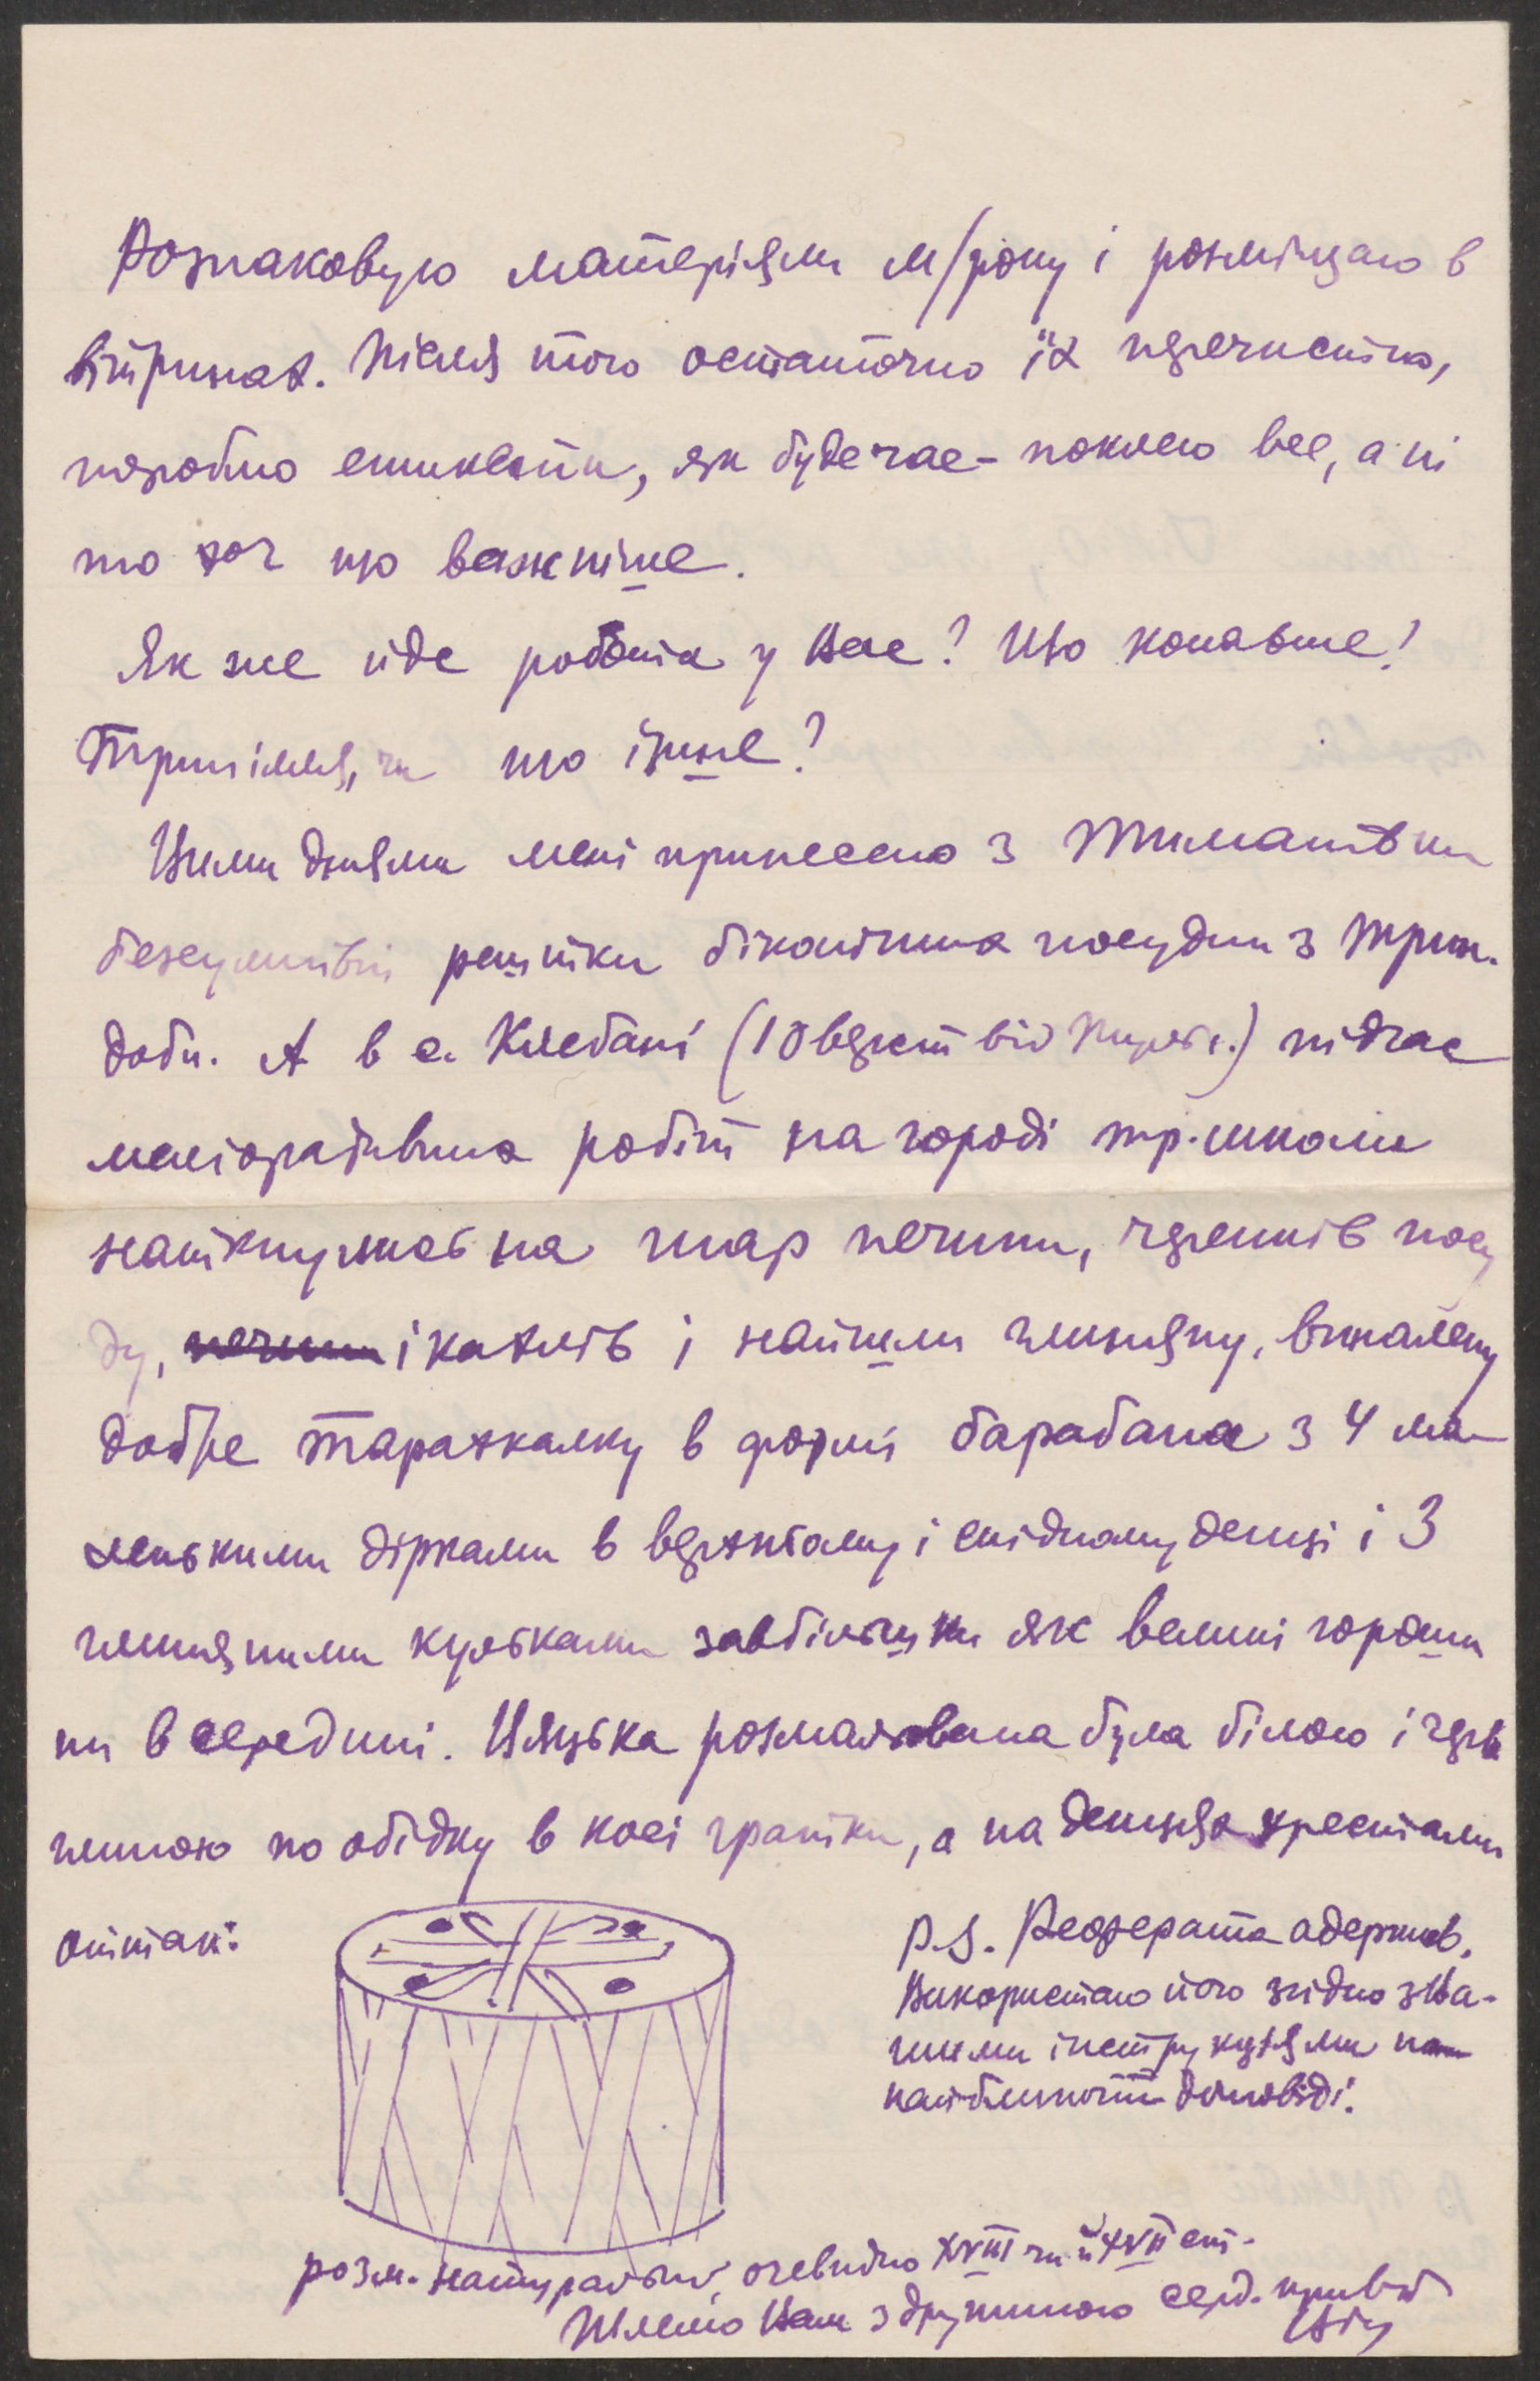 Розпаковую матеріяли м/року і розміщаю в
вітринах. Після того остаточно їх перечистю,
пороблю етикетки, як буде час - поклею все, а ні
то хоч що важніше.
Як же йде робота у Вас? Що копаєте?
Трипілля, чи що інше?
Цими днями мені принесено з Тиманівки
безсумнівні рештки біконічних посудин з Трип.
доби. А в с. Клебані (10 верст від) підчас
меліоративних робіт на городі тр. школи
наткнулись на шар печини, черепків посу
ду, і кахлів і найшли глиняну, випалену
добре тарахкалку в формі барабана з 4 ма-
ленькими дірками в верхньому і спідному денці і 3
глиняними кульками завбільшки як великі гороши
ни в середині. Цяцька розмальована була білою і черво
по обідку в косі гратки, а на денцях хрестами
оттак:
P.S. Реферата одержав.
Використаю його згідно з Ва-
шими інструкціями на
найближчій доповіді.
розм. натуральний, очевидно XVIII чи й XVII ст.
Шлемо Вам з дружиною серд. привіт